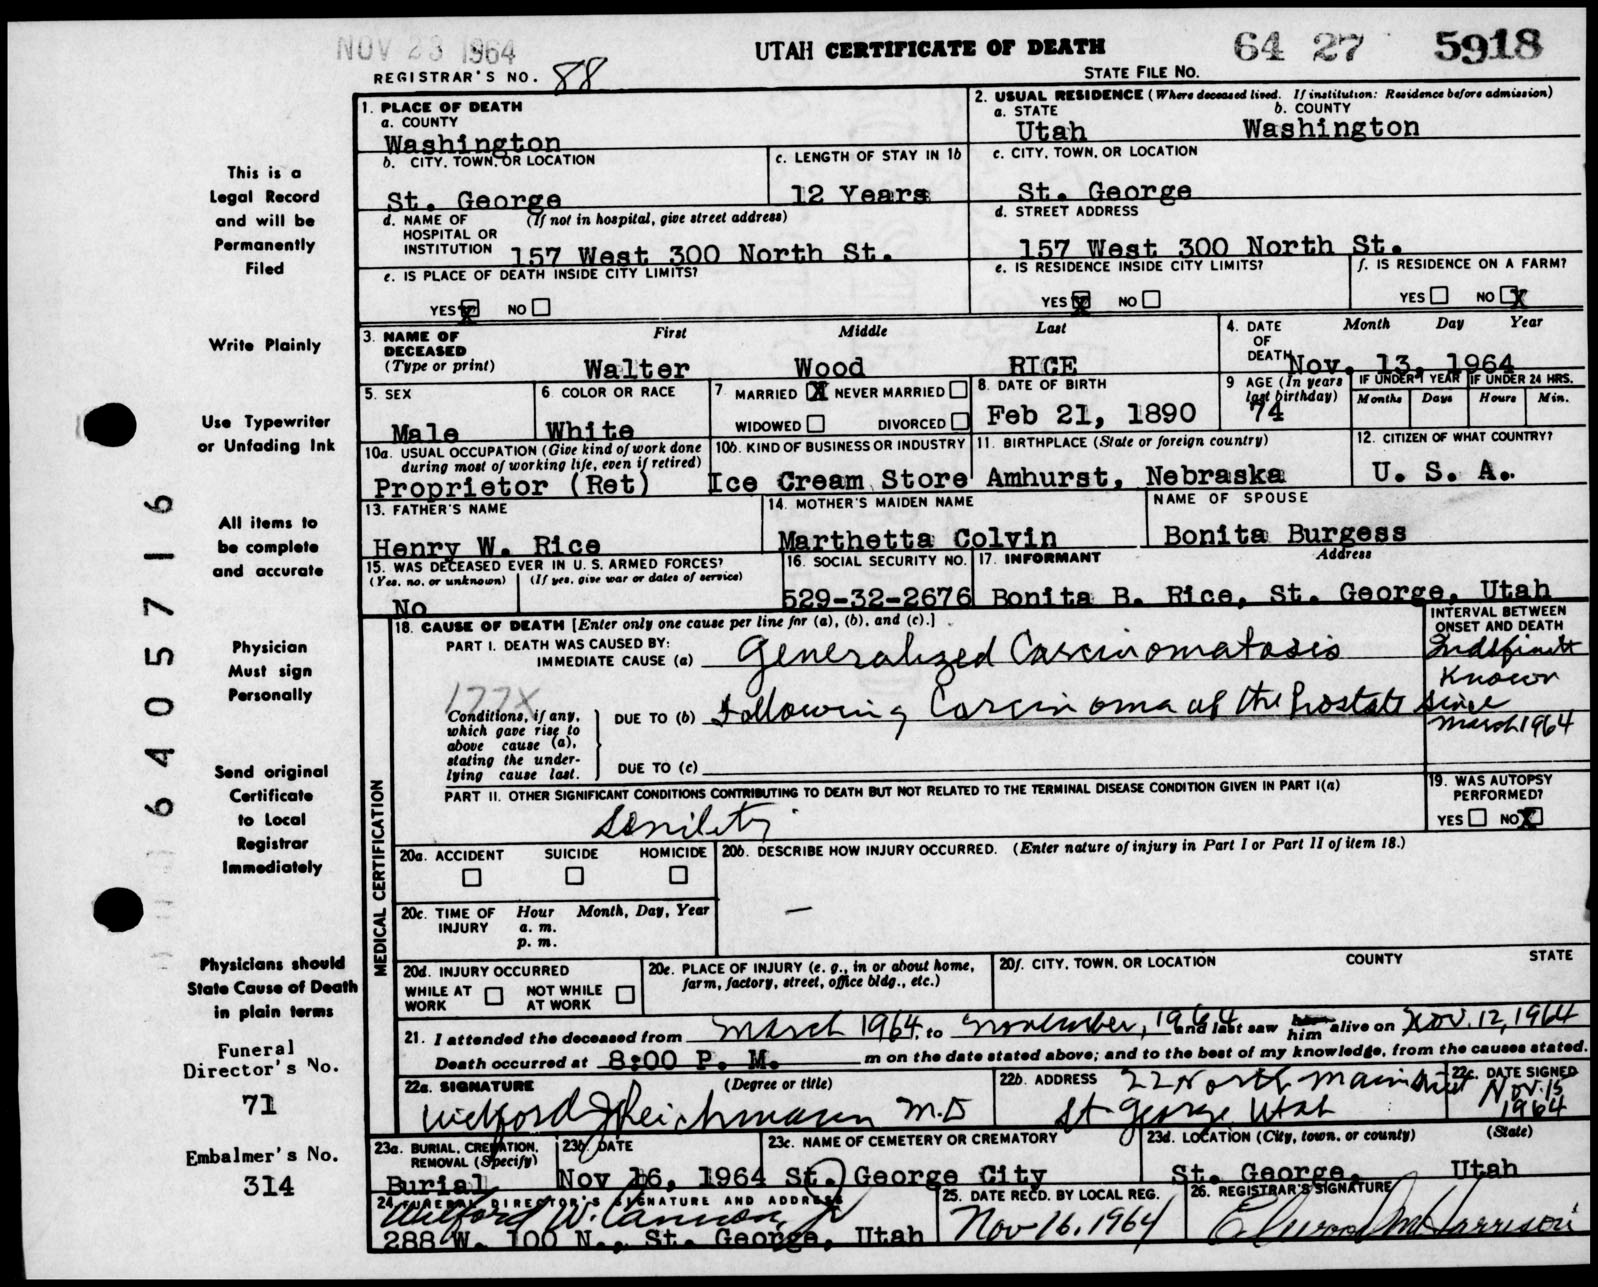 NOV 23 1964
UTAH CERTIFICATE OF DEATH
64 27 5918
REGISTRAR'S NO. 88
STATE FILE NO.
This is a
Legal Record
and will be
Permanently
Filed
Write Plainly
Use Typewriter
or Unfading Ink
All items to
be complete
and accurate
Physician
Must sign
Personally
Send original
Certificate
to Local
Registrar
Immediately
Physicians should
State Cause of Death
in plain terms
Funeral
Director's No.
71
Embalmer's No.
314
6405716
1. PLACE OF DEATH
a. COUNTY
Washington
2. USUAL RESIDENCE (Where deceased lived. If institution: Residence before admission)
a. STATE b. COUNTY
Utah Washington
b. CITY, TOWN, OR LOCATION
St. George
c. LENGTH OF STAY IN 1b
12 Years
c. CITY, TOWN, OR LOCATION
St. George
d. NAME OF (If not in hospital, give street address)
HOSPITAL OR
INSTITUTION 157 West 300 North St.
d. STREET ADDRESS
157 West 300 North St.
e. IS PLACE OF DEATH INSIDE CITY LIMITS?
YES X NO
e. IS RESIDENCE INSIDE CITY LIMITS?
YES X NO
f. IS RESIDENCE ON A FARM?
YES NO X
3. NAME OF First Middle Last
DECEASED
(Type or print) Walter Wood RICE
4. DATE Month Day Year
OF
DEATH Nov. 13, 1964
5. SEX
Male
6 COLOR OR RACE
White
7 MARRIED X NEVER MARRIED
WIDOWED DIVORCED
8. DATE OF BIRTH
Feb 21, 1890
9 AGE (In years
last birthday)
74
IF UNDER 1 YEAR
Months Days
IF UNDER 24 HRS.
Hours Min.
10a. USUAL OCCUPATION (Give kind of work done
during most of working life, even if retired)
Proprietor (Ret)
10b. KIND OF BUSINESS OR INDUSTRY
Ice Cream Store
11. BIRTHPLACE (State or foreign country)
Amhurst, Nebraska
12. CITIZEN OF WHAT COUNTRY?
U. S. A.
13. FATHER'S NAME
Henry W. Rice
14. MOTHER'S MAIDEN NAME
Marthetta Colvin
NAME OF SPOUSE
Bonita Burgess
15. WAS DECEASED EVER IN U. S. ARMED FORCES?
(Yes, no, or unknown) (If yes, give war or dates of service)
No
16. SOCIAL SECURITY NO.
529-32-2676
17. INFORMANT Address
Bonita B. Rice, St. George, Utah
MEDICAL CERTIFICATION
18. CAUSE OF DEATH [Enter only one cause per line for (a), (b), and (c).]
PART I. DEATH WAS CAUSED BY:
IMMEDIATE CAUSE (a) Generalized Carcinomatosis
INTERVAL BETWEEN
ONSET AND DEATH
Indefinite
Known
since
March 1964
177X
Conditions, if any,
which gave rise to
above cause (a),
stating the under-
lying cause last.
DUE TO (b) Following Carcinoma of the Prostate
DUE TO (c)
PART II. OTHER SIGNIFICANT CONDITIONS CONTRIBUTING TO DEATH BUT NOT RELATED TO THE TERMINAL DISEASE CONDITION GIVEN IN PART I(a)
Senility
19. WAS AUTOPSY
PERFORMED?
YES NO X
20a. ACCIDENT SUICIDE HOMICIDE
20b. DESCRIBE HOW INJURY OCCURRED. (Enter nature of injury in Part I or Part II of item 18.)
—
20c. TIME OF Hour Month, Day, Year
INJURY a. m.
p. m.
20d. INJURY OCCURRED
WHILE AT NOT WHILE
WORK AT WORK
20e. PLACE OF INJURY (e. g., in or about home,
farm, factory, street, office bldg., etc.)
20f. CITY, TOWN, OR LOCATION COUNTY STATE
21. I attended the deceased from March 1964, to November, 1964 and last saw her him alive on Nov. 12, 1964
Death occurred at 8:00 P. M. m on the date stated above; and to the best of my knowledge, from the causes stated.
22a. SIGNATURE (Degree or title)
Wilford J Reichmann M.D
22b. ADDRESS 22 North Main Street
St George, Utah
22c. DATE SIGNED
Nov. 15
1964
23a. BURIAL, CREMATION,
REMOVAL (Specify)
Burial
23b. DATE
Nov 16, 1964
23c. NAME OF CEMETERY OR CREMATORY
St. George City
23d. LOCATION (City, town, or county) (State)
St. George, Utah
24. FUNERAL DIRECTOR'S SIGNATURE AND ADDRESS
Wilford W. Cannon, Jr
288 W. 100 N., St. George, Utah
25. DATE RECD. BY LOCAL REG.
Nov 16, 1964
26. REGISTRAR'S SIGNATURE
Elwood M Harrison